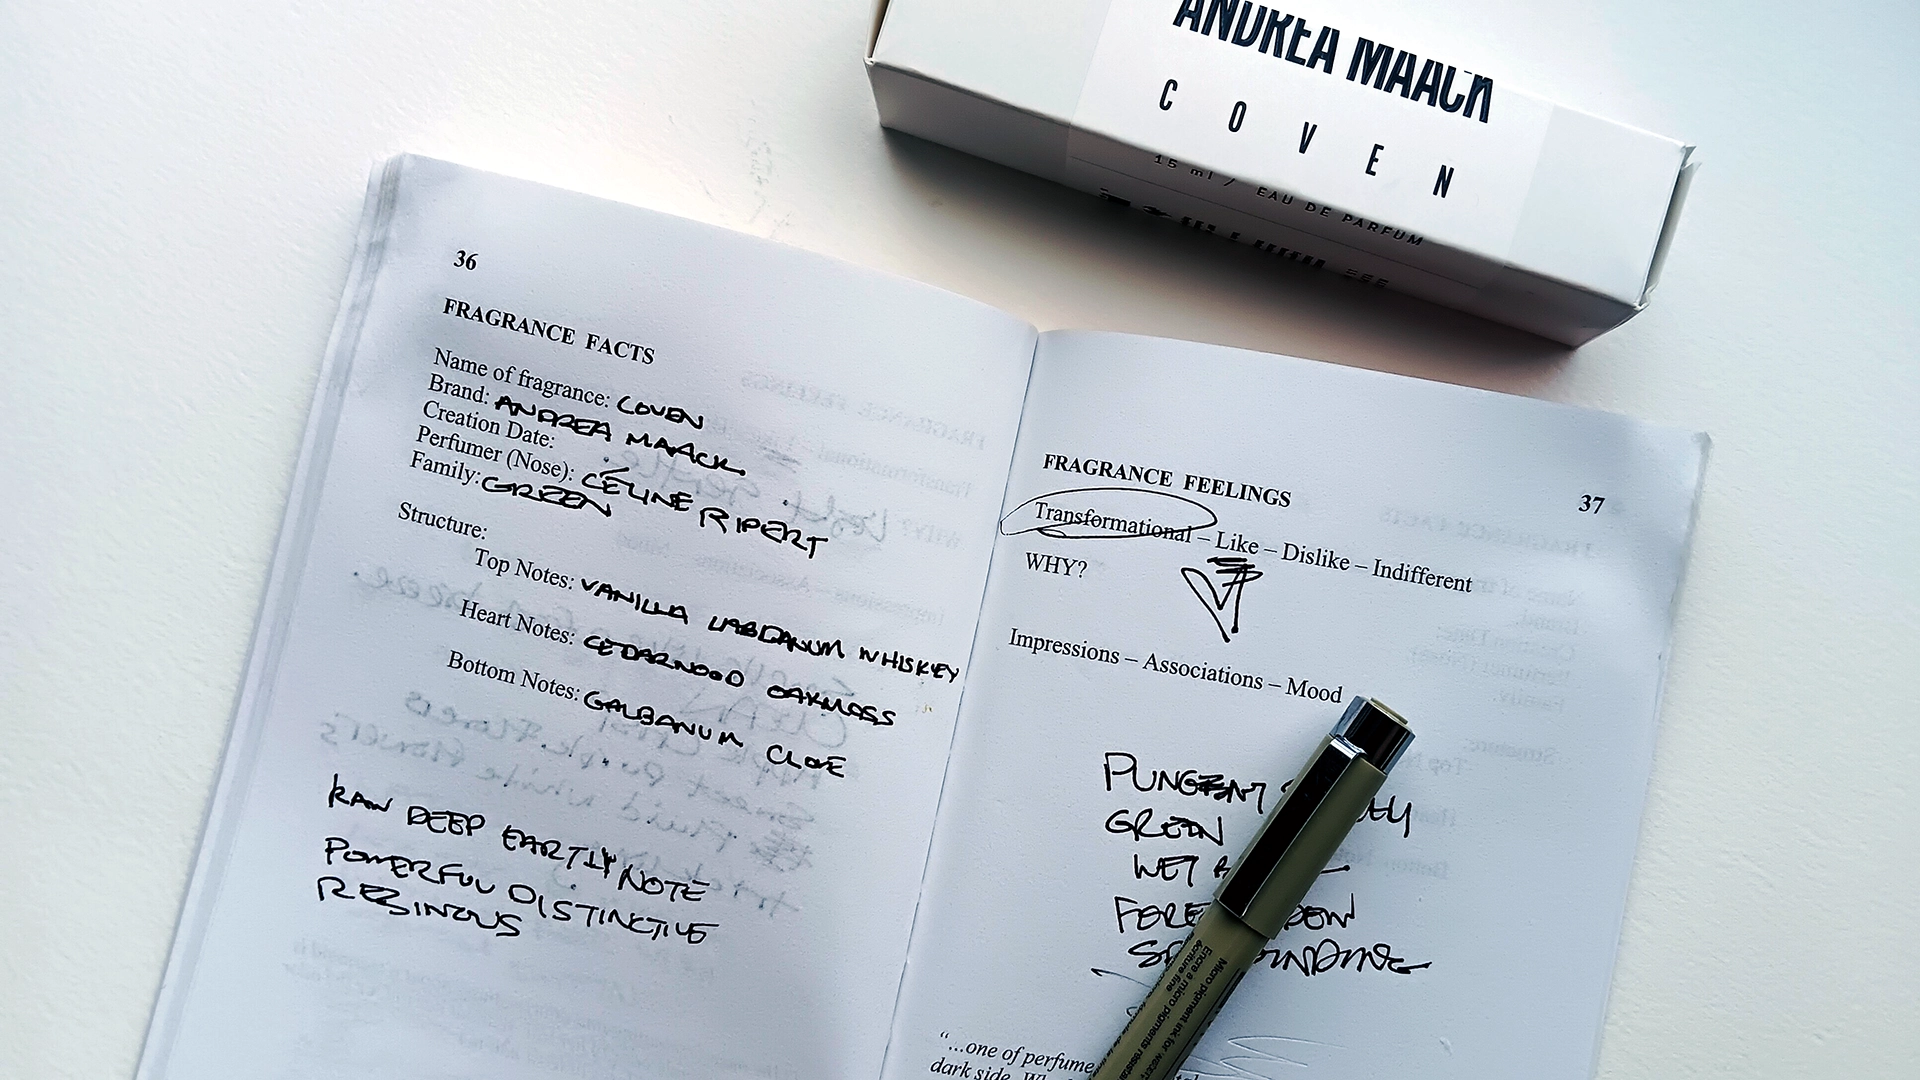 ANDREA MAACK
COVEN
15 ml / EAU DE PARFUM
36
FRAGRANCE FACTS
Name of fragrance: COVEN
Brand: ANDREA MAACK
Creation Date:
Perfumer (Nose): CÉLINE RIPERT
Family: GREEN
Structure:
Top Notes: VANILLA LABDANUM WHISKEY
Heart Notes: CEDARWOOD OAKMOSS
Bottom Notes: GALBANUM CLOVE
RAW DEEP EARTHY NOTE
POWERFUL DISTINCTIVE
RESINOUS
37
FRAGRANCE FEELINGS
Transformational – Like – Dislike – Indifferent
WHY?
Impressions – Associations – Mood
PUNGENT
GREEN
WET
"...one of perfume
dark side.
Micro pigment ink for
Encre à micro pigments
écriture fine